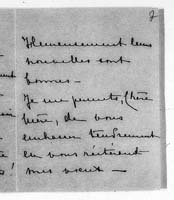 2
Heureusement leurs
nouvelles sont
bonnes —
Je me permets, Chère
Mère, de vous
embrasser tendrement
en vous réitérant
mes vœux —